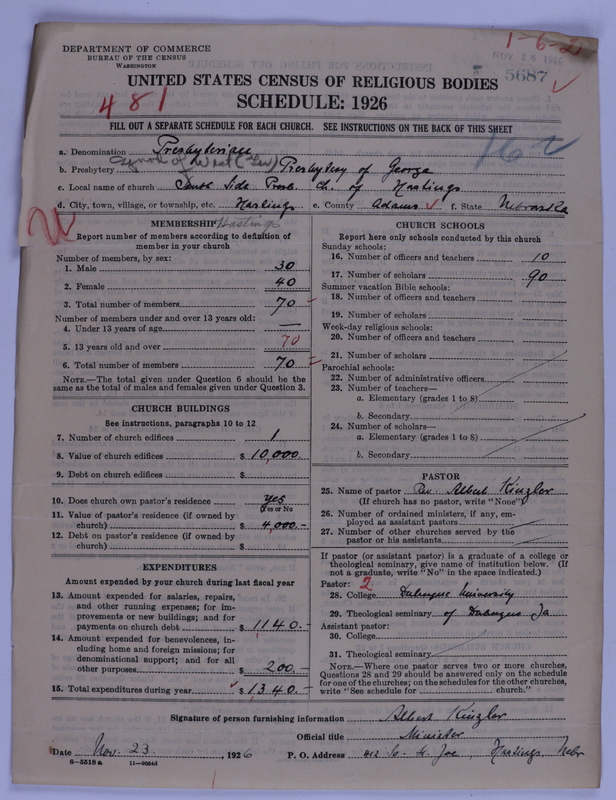 DEPARTMENT OF COMMERCE
BUREAU OF THE CENSUS
WASHINGTON
1-6-2
NOV 26 1926
5687
UNITED STATES CENSUS OF RELIGIOUS BODIES
SCHEDULE: 1926
481
FILL OUT A SEPARATE SCHEDULE FOR EACH CHURCH. SEE INSTRUCTIONS ON THE BACK OF THIS SHEET
162
a. Denomination Presbyterian
Synod of West (Ger)
b. Presbytery Presbytery of George
c. Local name of church South Side Presb. Ch. of Hastings
d. City, town, village, or township, etc. Hastings e. County Adams f. State Nebraska
Hastings
MEMBERSHIP
Report number of members according to definition of
member in your church
Number of members, by sex:
1. Male 30
2. Female 40
3. Total number of members 70
Number of members under and over 13 years old:
4. Under 13 years of age —
5. 13 years old and over 70
6. Total number of members 70
NOTE.—The total given under Question 6 should be the
same as the total of males and females given under Question 3.
CHURCH BUILDINGS
See instructions, paragraphs 10 to 12
7. Number of church edifices 1
8. Value of church edifices $ 10,000.
9. Debt on church edifices $
10. Does church own pastor's residence yes
(Yes or No)
11. Value of pastor's residence (if owned by
church) $ 4,000.-
12. Debt on pastor's residence (if owned by
church) $
EXPENDITURES
Amount expended by your church during last fiscal year
13. Amount expended for salaries, repairs,
and other running expenses; for im-
provements or new buildings; and for
payments on church debt $ 1140.-
14. Amount expended for benevolences, in-
cluding home and foreign missions; for
denominational support; and for all
other purposes $ 200.-
15. Total expenditures during year $ 1340.-
CHURCH SCHOOLS
Report here only schools conducted by this church
Sunday schools:
16. Number of officers and teachers 10
17. Number of scholars 90
Summer vacation Bible schools:
18. Number of officers and teachers
19. Number of scholars
Week-day religious schools:
20. Number of officers and teachers
21. Number of scholars
Parochial schools:
22. Number of administrative officers
23. Number of teachers—
a. Elementary (grades 1 to 8)
b. Secondary
24. Number of scholars—
a. Elementary (grades 1 to 8)
b. Secondary
PASTOR
25. Name of pastor Rev. Albert Kinzler
(If church has no pastor, write "None")
26. Number of ordained ministers, if any, em-
ployed as assistant pastors
27. Number of other churches served by the
pastor or his assistants
If pastor (or assistant pastor) is a graduate of a college or
theological seminary, give name of institution below. (If
not a graduate, write "No" in the space indicated.)
Pastor: 2
28. College Dubuque University
29. Theological seminary of Dubuque Ia
Assistant pastor:
30. College
31. Theological seminary
NOTE.—Where one pastor serves two or more churches,
Questions 28 and 29 should be answered only on the schedule
for one of the churches; on the schedules for the other churches,
write "See schedule for church."
Signature of person furnishing information Albert Kinzler
Official title Minister
Date Nov. 23, 1926 P. O. Address 412 So. St. Joe, Hastings, Nebr
8-5518a 11-9054d